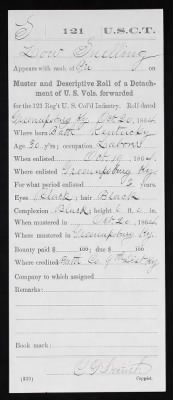 S 121 U.S.C.T.
Dow Snelling
Appears with rank of Pvt on
Muster and Descriptive Roll of a Detachment of U. S. Vols. forwarded
for the 121 Reg't U. S. Col'd Infantry. Roll dated
Greensburg Ky Oct 20, 1864.
Where born Bath Kentucky
Age 30 y'rs; occupation Laborer
When enlisted Oct 19, 1864.
Where enlisted Greensburg Ky
For what period enlisted 3 years.
Eyes Black; hair Black
Complexion Black; height 6 ft. in.
When mustered in Oct 20, 1864.
Where mustered in Greensburg Ky.
Bounty paid $ 100; due $ 100
Where credited Bath Co. 9th Dist Ky
Company to which assigned
Remarks:
Book mark:
(339) Copyist.